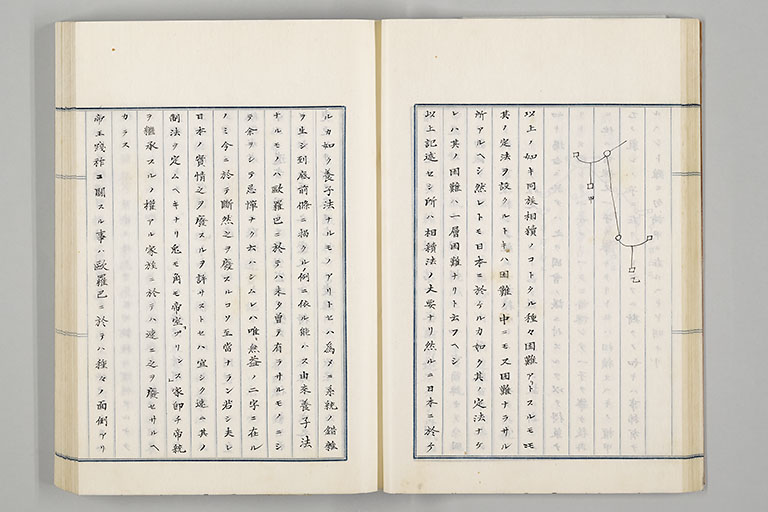 甲
乙
以上ノ如キ同族相續ノコトタル種々困難アリトスルモ
其ノ定法ヲ設クルトキハ困難ノ中ニモ又困難ナラサル
所アルヘシ然レトモ日本ニ於ケルカ如ク其ノ定法ナケ
レハ其ノ困難ハ一層困難ナリト云フヘシ
以上記述セシ所ハ相續法ノ大要ナリ然ルニ日本ニ於ケ
ルカ如ク養子法ナルモノアリトセハ為メニ系統ノ錯雜
ヲ生シ到底前條ニ揭クル例ニ依ル能ハス由来養子法
ナルモノハ歐羅巴ニ於テハ未タ曾テ有ラサルモノニシ
テ余ヲシテ忌憚ナク云ハシムレハ唯無益ノ二字ニ在ル
ノミ今ニ於テ斷然之ヲ廢スルコソ至當ナラン若シ夫レ
日本ノ實情之ヲ廢スルヲ許サストセハ宜シク速ニ其ノ
制法ヲ定ムヘキナリ兎モ角モ帝室「プリンス」家卽チ帝統
ヲ繼承スルノ權アル家族ニ於テハ速ニ之ヲ廢セサルヘ
カラス
帝王踐祚ニ關スル事ハ歐羅巴ニ於テハ種々ノ面倒アリ